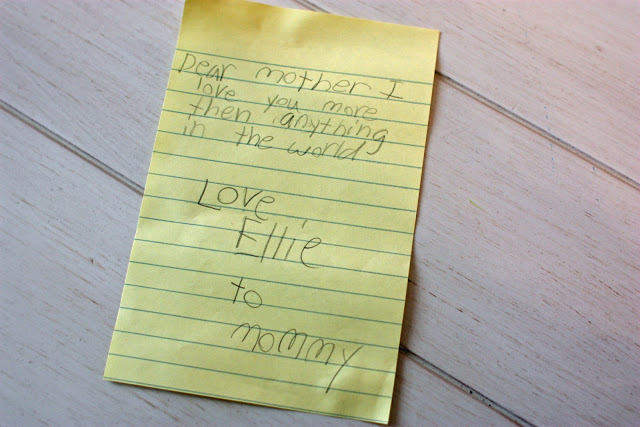 Dear mother I
love you more
then anything
in the world
Love,
Ellie
to
mommy